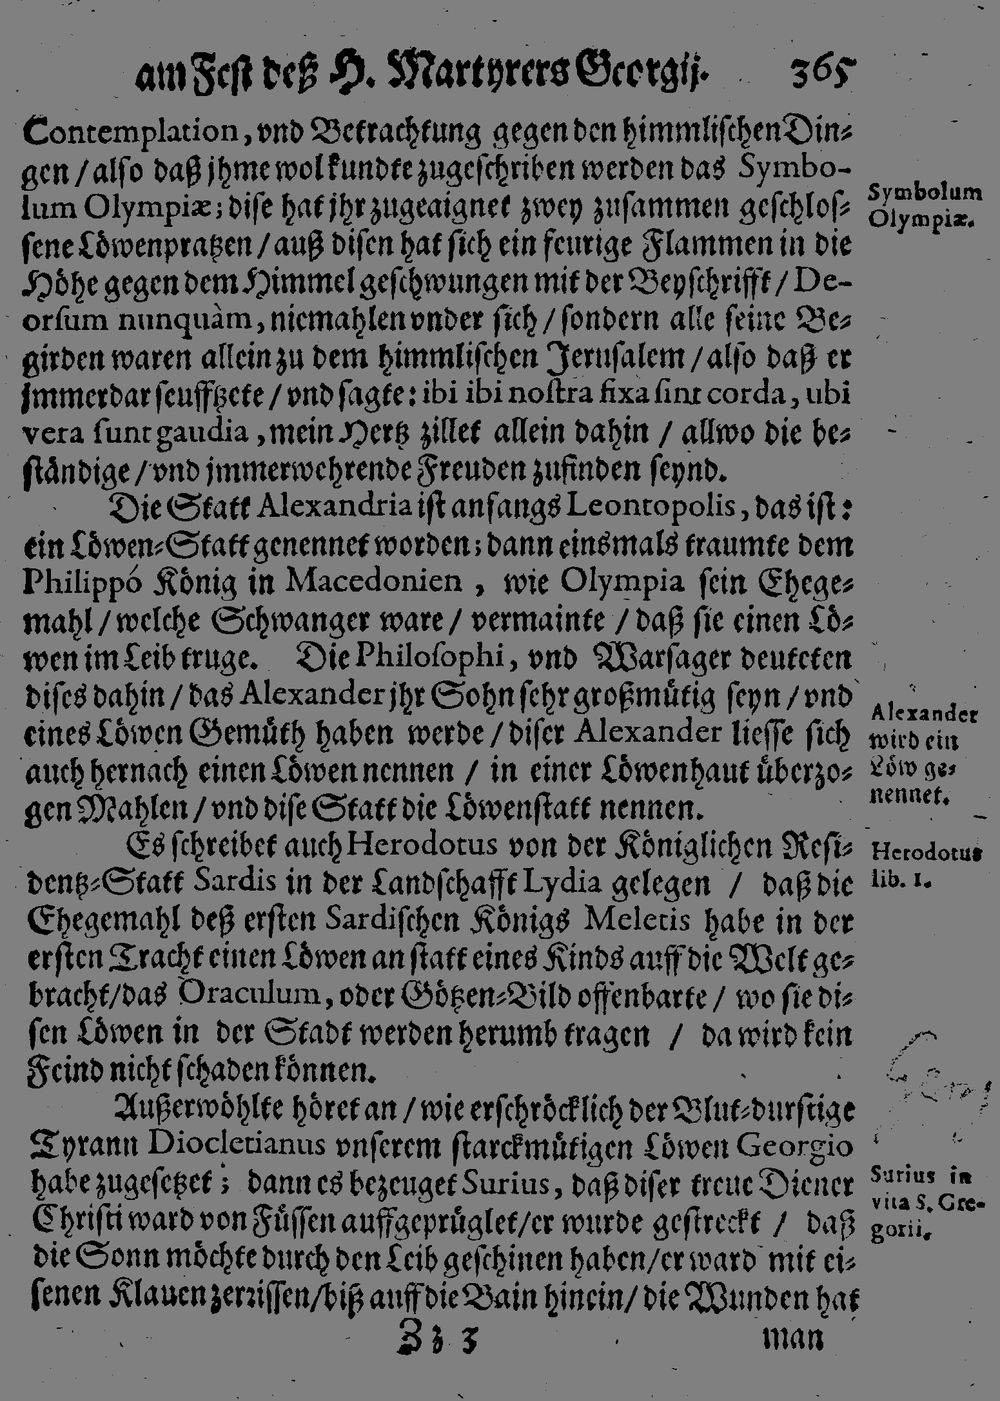 am Fest deß H. Martyrers Georgij. 365
Contemplation, vnd Betrachtung gegen den himmlischen Din⸗
gen / also daß jhme wol kundte zugeschriben werden das Symbo-
lum Olympiæ; dise hat jhr zugeaignet zwey zusammen geschlos⸗
sene Löwenpratzen / auß disen hat sich ein feurige Flammen in die
Höhe gegen dem Himmel geschwungen mit der Beyschrifft / De-
orsum nunquàm, niemahlen vnder sich / sondern alle seine Be⸗
girden waren allein zu dem himmlischen Jerusalem / also daß er
jmmerdar seufftzete / vnd sagte: ibi ibi nostra fixa sint corda, ubi
vera sunt gaudia, mein Hertz zillet allein dahin / allwo die be⸗
ständige / vnd jmmerwehrende Freuden zufinden seynd.
Symbolum
Olympiæ.
Die Statt Alexandria ist anfangs Leontopolis, das ist:
ein Löwen⸗Statt genennet worden; dann einsmals traumte dem
Philippó König in Macedonien, wie Olympia sein Ehege⸗
mahl / welche Schwanger ware / vermainte / daß sie einen Lö⸗
wen im Leib truge. Die Philosophi, vnd Warsager deuteten
dises dahin / das Alexander jhr Sohn sehr großmütig seyn / vnd
eines Löwen Gemüth haben werde / diser Alexander liesse sich
auch hernach einen Löwen nennen / in einer Löwenhaut überzo⸗
gen Mahlen / vnd dise Statt die Löwenstatt nennen.
Alexander
wird ein
Löw ge⸗
nennet.
Es schreibet auch Herodotus von der Königlichen Resi⸗
dentz⸗Statt Sardis in der Landschafft Lydia gelegen / daß die
Ehegemahl deß ersten Sardischen Königs Meletis habe in der
ersten Tracht einen Löwen an statt eines Kinds auff die Welt ge⸗
bracht/das Oraculum, oder Götzen⸗Bild offenbarte / wo sie di⸗
sen Löwen in der Stadt werden herumb tragen / da wird kein
Feind nicht schaden können.
Herodotus
lib. 1.
Außerwöhlte höret an / wie erschröcklich der Blut⸗durstige
Tyrann Diocletianus vnserem starckmütigen Löwen Georgio
habe zugesetzet; dann es bezeuget Surius, daß diser treue Diener
Christi ward von Füssen auffgeprüglet/er wurde gestreckt / daß
die Sonn möchte durch den Leib geschinen haben/er ward mit ei⸗
senen Klauen zerrissen/biß auff die Bain hinein/ die Wunden hat
Surius in
vita S. Gre-
gorii.
Zz 3 man